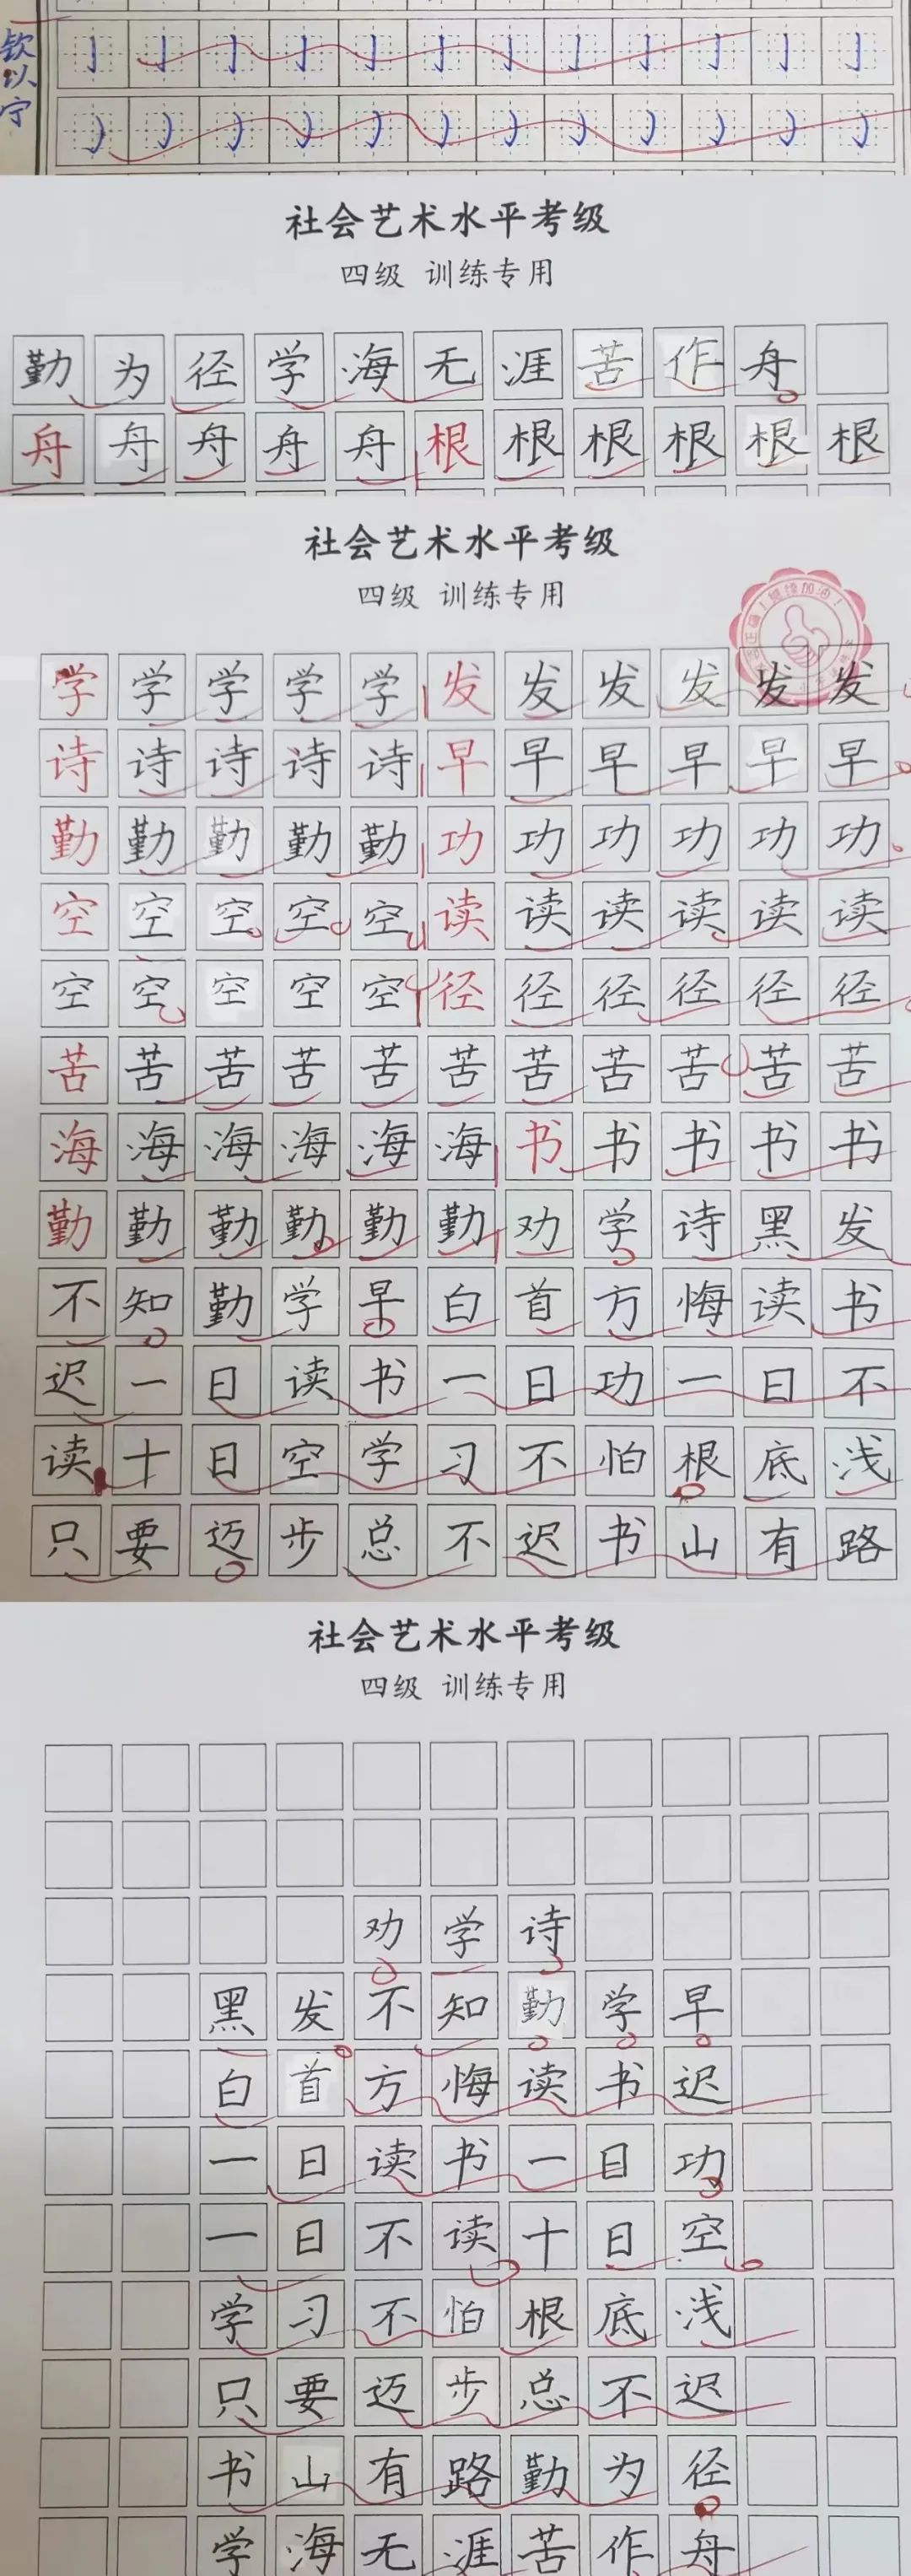 钦以宁
社会艺术水平考级
四级 训练专用
勤为径学海无涯苦作舟
舟舟舟舟舟根根根根根根
社会艺术水平考级
四级 训练专用
继续加油！
学学学学学发发发发发发
诗诗诗诗诗早早早早早早
勤勤勤勤勤功功功功功功
空空空空空读读读读读读
空空空空空径径径径径径
苦苦苦苦苦苦苦苦苦苦苦
海海海海海海书书书书书
勤勤勤勤勤勤劝学诗黑发
不知勤学早白首方悔读书
迟一日读书一日功一日不
读十日空学习不怕根底浅
只要迈步总不迟书山有路
社会艺术水平考级
四级 训练专用
劝学诗
黑发不知勤学早
白首方悔读书迟
一日读书一日功
一日不读十日空
学习不怕根底浅
只要迈步总不迟
书山有路勤为径
学海无涯苦作舟